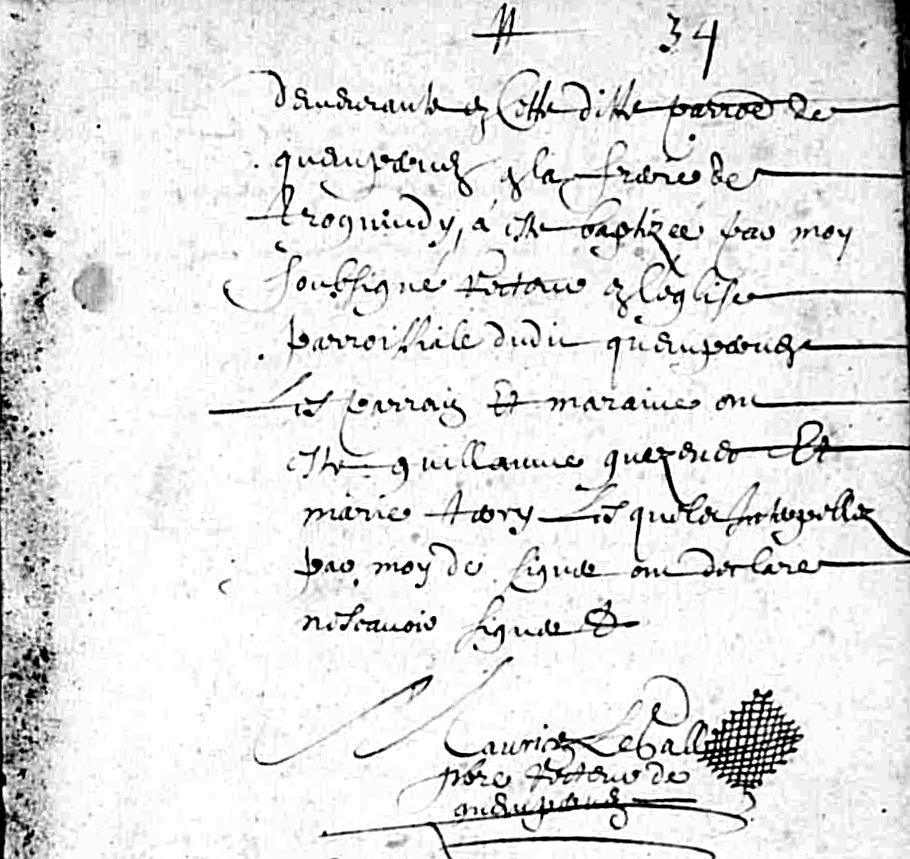 34
demeurante en Cette ditte parroe de
quemperven en la frerie de
Kroguindy, a esté baptizeé par moy
Soubsigné Recteur en leglise
parroissiale dudit quemperven
Les parrain Et maraine ont
esté guillaume quezenec Et
marie Les quels Interpellez
par moy de signer ont declaré
nescavoir signer &
Maurice Le Gall
pbre Recteur de
quemperven